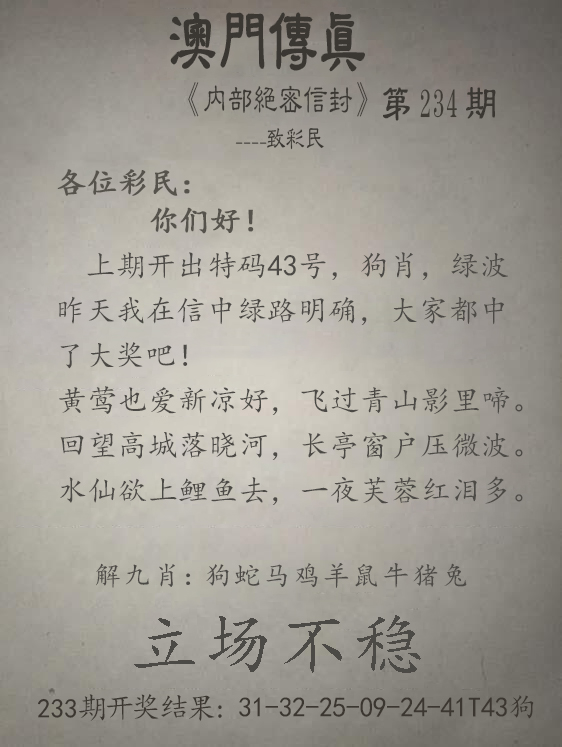 澳門傳眞
《內部絕密信封》第234期
----致彩民
各位彩民：
你们好！
上期开出特码43号，狗肖，绿波
昨天我在信中绿路明确，大家都中
了大奖吧！
黄莺也爱新凉好，飞过青山影里啼。
回望高城落晓河，长亭窗户压微波。
水仙欲上鲤鱼去，一夜芙蓉红泪多。
解九肖：狗蛇马鸡羊鼠牛猪兔
立场不稳
233期开奖结果：31-32-25-09-24-41T43狗